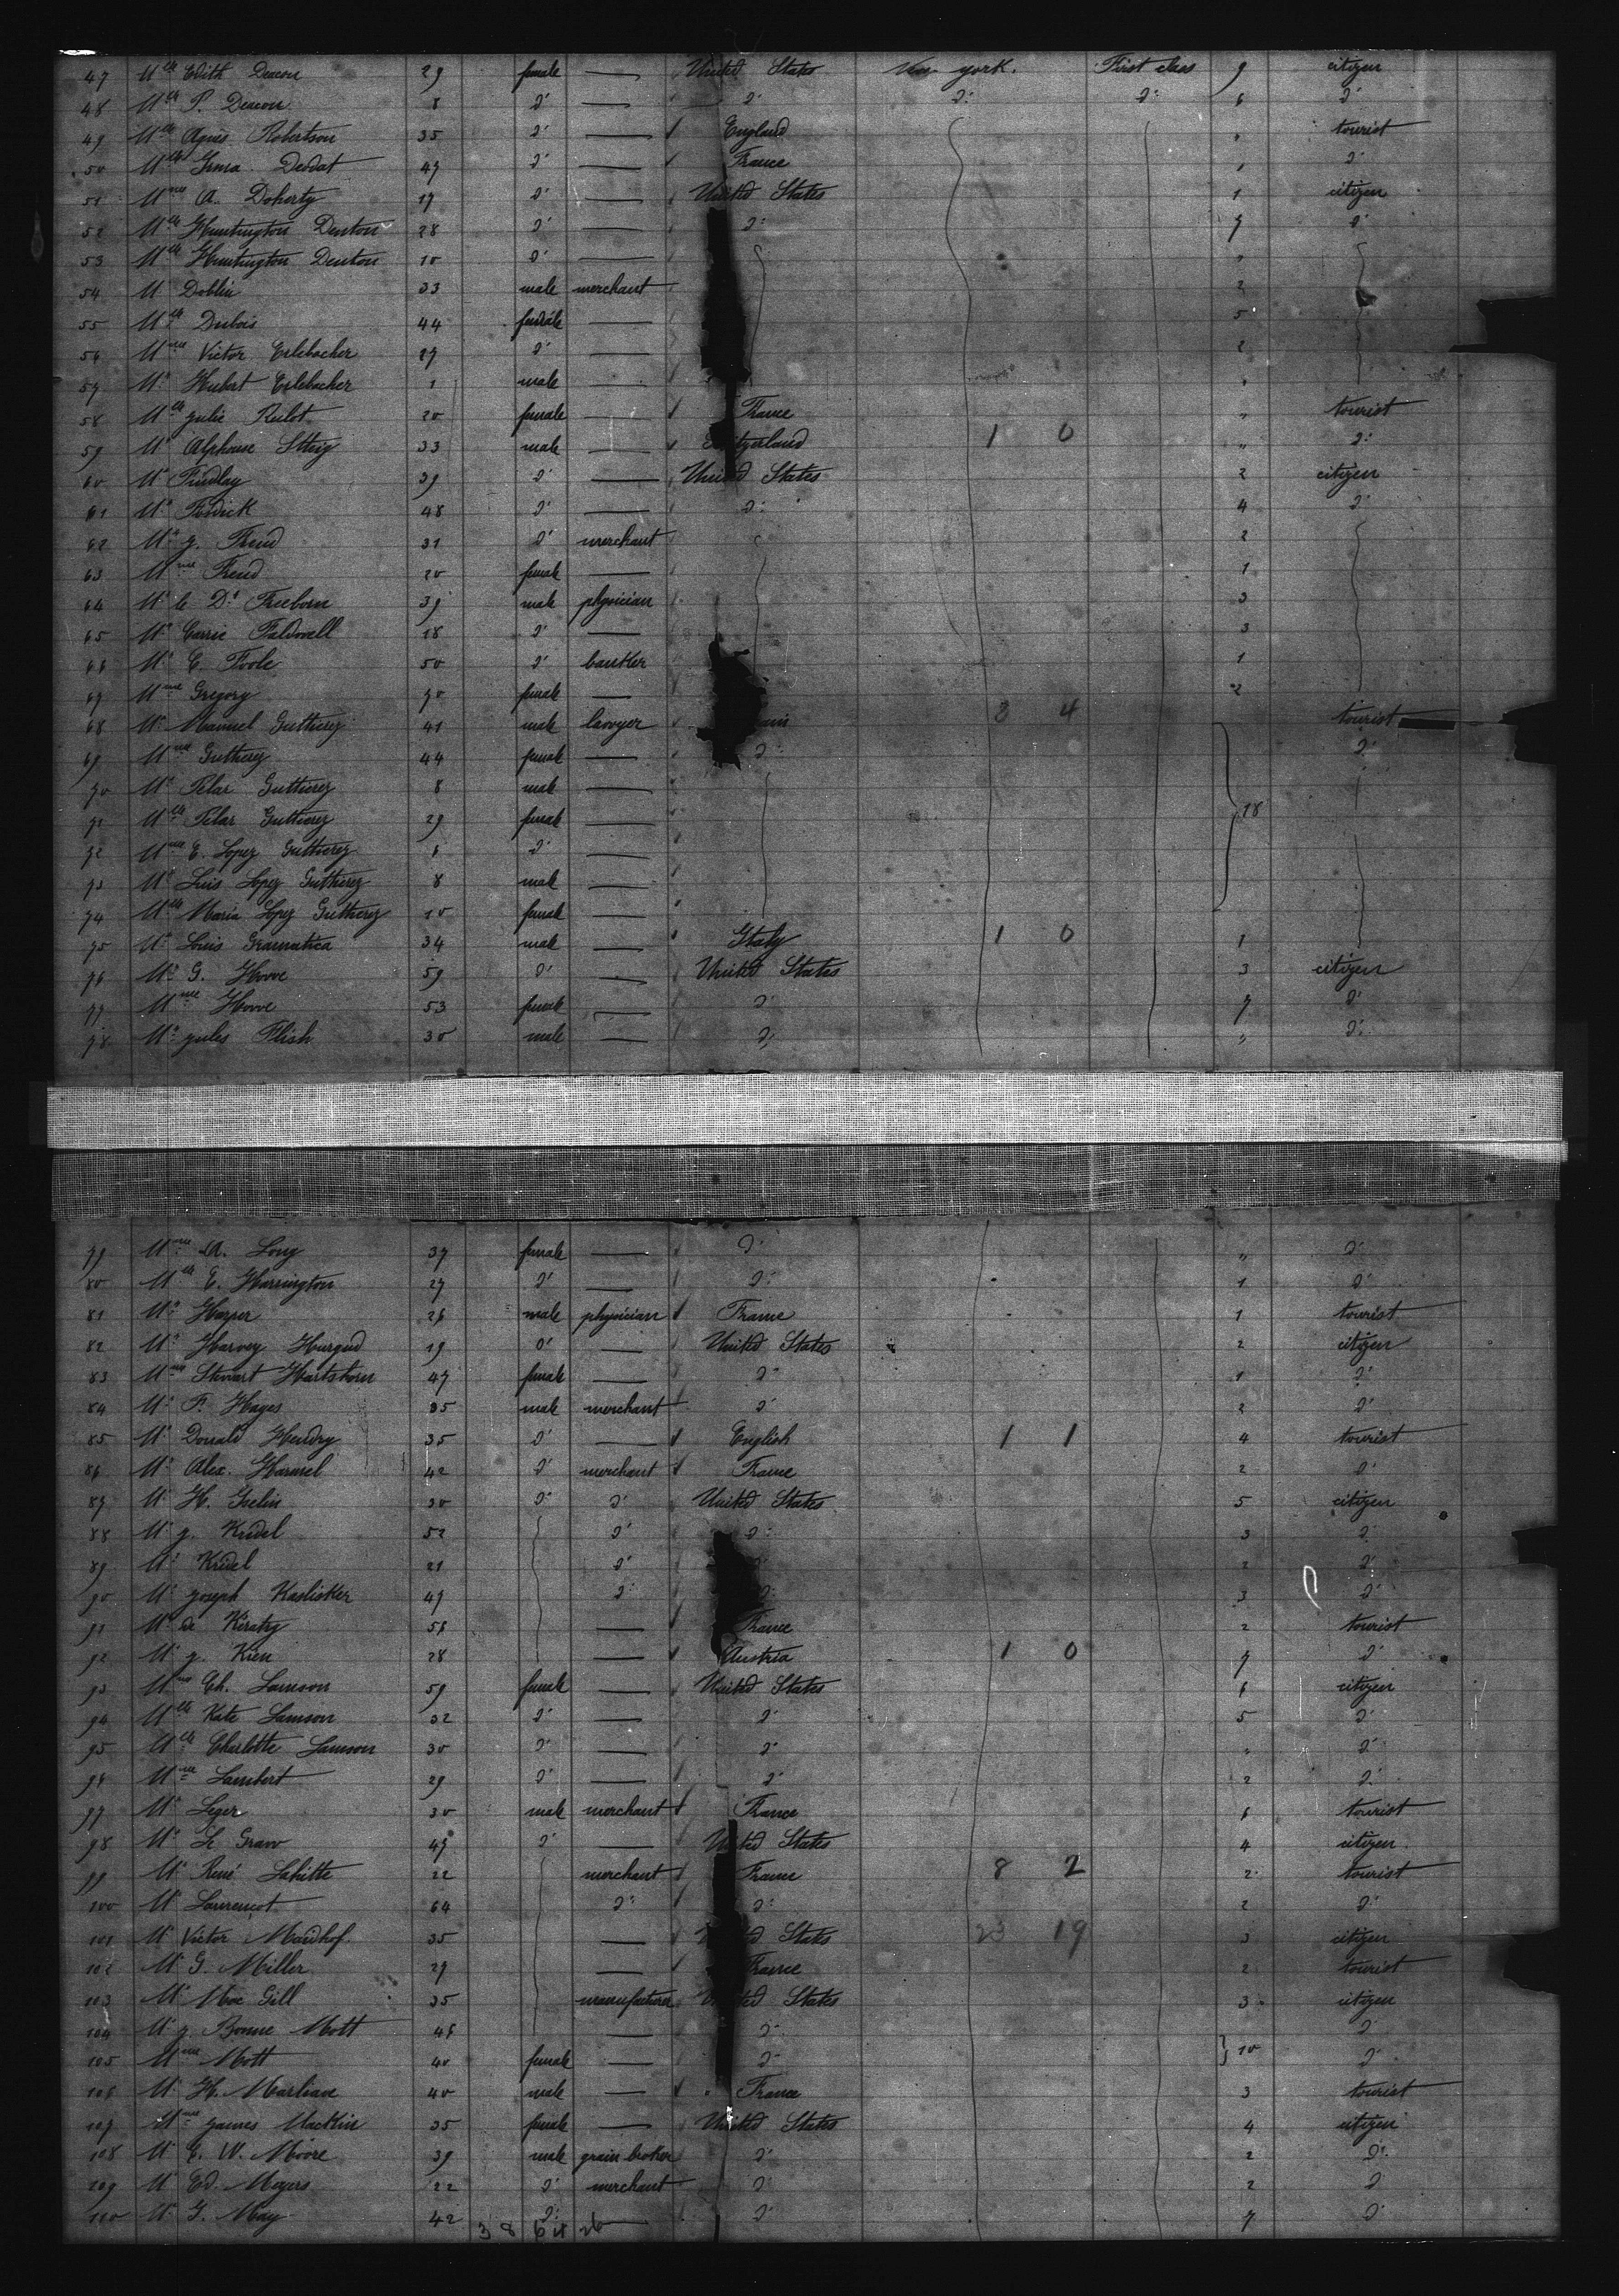 47 Mlle Edith Deacon 29 female — United States New York. First class 9 citizen
48 Mlle P. Deacon 8 d° — d° d° d° 6 d°
49 Mlle Agnes Robertson 35 d° — England " tourist
50 Mlle Irma Deodat 47 d° — France 1 d°
51 Mme A. Doherty 17 d° — United States 1 citizen
52 Mlle Huntington Denton 28 d° — d° 7 d°
53 Mlle Huntington Denton 10 d° — "
54 Mr Doblin 33 male merchant 2
55 Mlle Dubois 44 female — 5
56 Mme Victor Erlebacher 27 d° — 2
57 Mr Hubert Erlebacher 1 male — "
58 Mlle Julie Rulot 20 female — France " tourist
59 Mr Alphonse 33 male — tzerland 1 0 " d°
60 Mr Findlay 39 d° — United States 2 citizen
61 Mr Fosdick 48 d° — d° 4 d°
62 Mr J. Freud 31 d° merchant 2
63 Mme Freud 20 female — 1
64 Mr le Dr Freeborn 39 male physician 3
65 Mr Carrie Faldwell 18 d° — 3
66 Mr E. Foole 50 d° banker 1
67 Mme Gregory 70 female — 2
68 Mr Manuel Guttierez 41 male lawyer 3 4 tourist
69 Mme Guttierez 44 female — d° d°
70 Mr Pilar Guttierez 8 male —
71 Mlle Pilar Guttierez 29 female — 18
72 Mme E. Lopez Guttierez 6 d° —
73 Mr Luis Lopez Guttierez 8 male —
74 Mlle Maria Lopez Guttierez 10 female —
75 Mr Louis Gramatica 34 male — Italy 1 0 1
76 Mr G. Howe 59 d° — United States 3 citizen
77 Mme Howe 53 female — d° 7 d°
78 Mr Jules Flish 30 male — d° " d°
79 Mme A. Long 37 female — d° " d°
80 Mlle E. Harrington 27 d° — d° 1 d°
81 Mr Harper 26 male physician France 1 tourist
82 Mr Harvey 19 d° — United States 2 citizen
83 Mme Stewart Hartshorn 47 female — d° 1 d°
84 Mr P. Hayes 35 male merchant d° 2 d°
85 Mr Donald Hendry 35 d° — English 1 1 4 tourist
86 Mr Alex. Harmel 42 d° merchant France 2 d°
87 Mr H. Iselin 30 d° d° United States 5 citizen
88 Mr J. Kridel 52 d° d° 3 d°
89 Mr Kridel 21 d° d° 2 d°
90 Mr Joseph Kaslisker 47 d° d° 3 d°
91 Mr de Kératry 56 — France 2 tourist
92 Mr J. Kien 28 — Austria 1 0 7 d°
93 Mme Ch. Lamson 59 female — United States 6 citizen
94 Mlle Kate Lamson 32 d° — d° 5 d°
95 Mlle Charlotte Lamson 30 d° — d° " d°
96 Mme Lambert 29 d° — d° 2 d°
97 Mr Leger 30 male merchant France 6 tourist
98 Mr Le Graw 47 d° — United States 4 citizen
99 Mr René Lahitte 22 merchant France 8 2 2 tourist
100 Mr Laurencot 64 d° d° 2 d°
101 Mr Victor Maidhof 35 — d States 23 19 3 citizen
102 Mr G. Miller 29 — France 2 tourist
103 Mr Moe Gill 35 manufacturer United States 3 citizen
104 Mr J. Bonne Mott 46 — d° d°
105 Mme Mott 40 female — d° 10 d°
106 Mr H. Marliave 40 male — France 3 tourist
107 Mme James Mackin 35 female — United States 4 citizen
108 Mr E. W. Moore 39 male grain broker d° 2 d°
109 Mr Ed. Meyers 22 d° merchant d° 2 d°
110 Mr G. May 42 d° — d° 7 d°
38